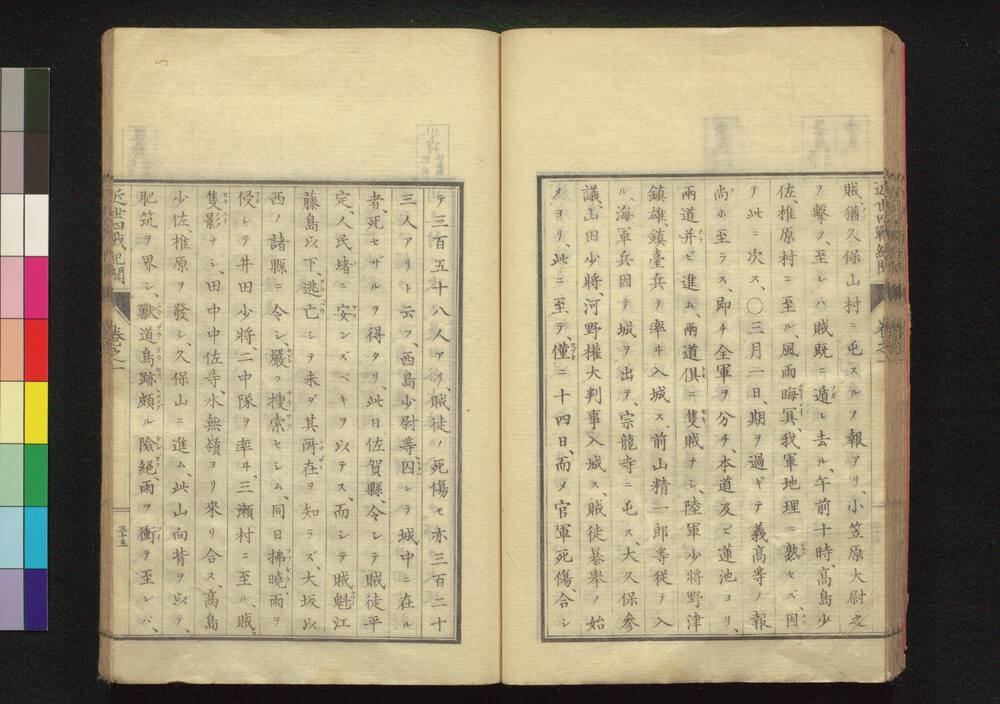 近世四戰紀聞 卷之一
賊、猶久保山村ニ屯スルノ報アリ、小笠原大尉之
ヲ擊ツ、至レハ賊既ニ遁レ去ル、午前十時、髙島少
佐、椎原村ニ至ル、風雨晦冥、我軍地理ニ熟セズ、因
テ此ニ次ス、〇三月一日、期ヲ過ギテ義髙等ノ報
尚ホ至ラス、即チ全軍ヲ分チ、本道及ビ蓮池ヨリ、
兩道并ビ進ム、兩道俱ニ隻賊ナシ、陸軍少將野津
鎮雄、鎮臺兵ヲ率ヰ入城ス、前山精一郎等從テ入
ル、海軍兵因テ城ヲ出テ、宗龍寺ニ屯ス、大久保參
議、山田少將、河野權大判事入城ス、賊徒暴舉ノ始
メヨリ、此ニ至テ、僅ニ十四日、而メ官軍死傷、合シ
テ三百五十八人アリ、賊徒ノ死傷モ亦三百二十
三人アリト云フ、西島少尉等、囚レテ城中ニ在ル
者、死セザルヲ得タリ、此日佐賀縣令シテ賊徒平
定、人民堵ニ安ンズベキヲ以テス、而シテ賊魁江
藤島以下、逃亡シテ未ダ其所在ヲ知ラズ、大坂以
西ノ諸縣ニ令シ、嚴ク搜索セシム、同日拂曉、雨ヲ
侵シテ井田少將、二中隊ヲ率ヰ、三瀬村ニ至ル、賊、
隻影ナシ、田中中佐等水無嶺ヨリ來リ合ス、髙島
少佐、椎原ヲ發シ、久保山ニ進ム、此山向背ヲ以テ、
肥筑ヲ界シ、獸道鳥跡頗ル險絕、雨ヲ衝テ至レバ、
近世四戰紀聞 卷之一 三十五